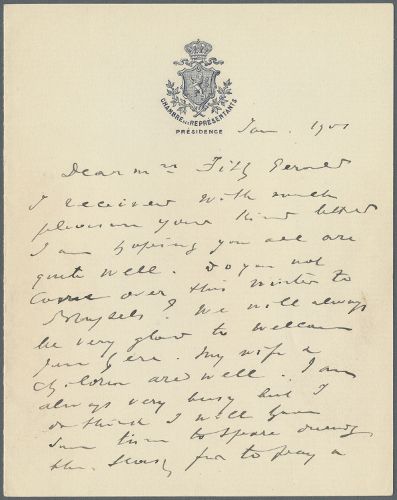 CHAMBRE DES REPRÉSENTANTS
PRÉSIDENCE
Jan. 1901
Dear Mrs Fitz Gerald
I received with much
pleasure your kind letter
I am hoping you all are
quite well. Do you not
come over this winter to
Brussels? We will always
be very glad to welcome
you here. My wife &
children are well. I am
always very busy but I
do think I will have
some time to spare
the for to pay a